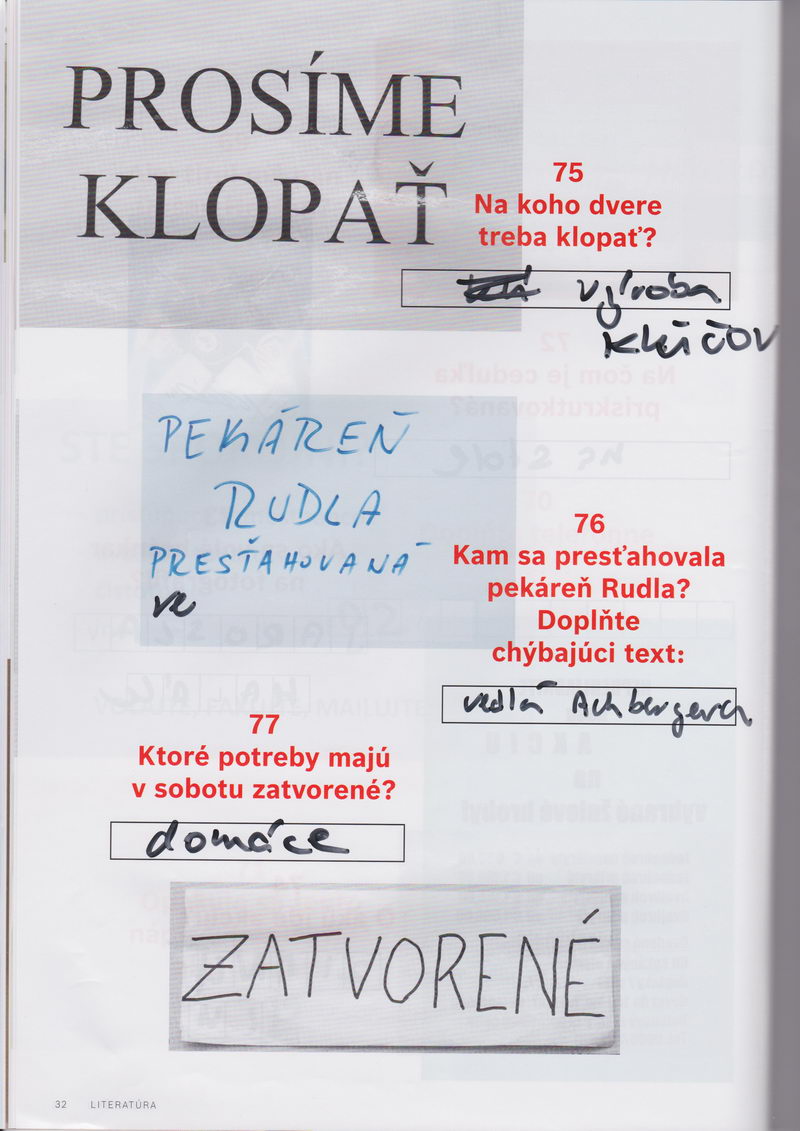 PROSÍME
KLOPAŤ
75
Na koho dvere
treba klopať?
výroba
kľúčov
PEKÁREŇ
RUDLA
PRESŤAHOVANÁ
ve
76
Kam sa presťahovala
pekáreň Rudla?
Doplňte
chýbajúci text:
vedľa Achbergerch
77
Ktoré potreby majú
v sobotu zatvorené?
domáce
ZATVORENÉ
32 LITERATÚRA